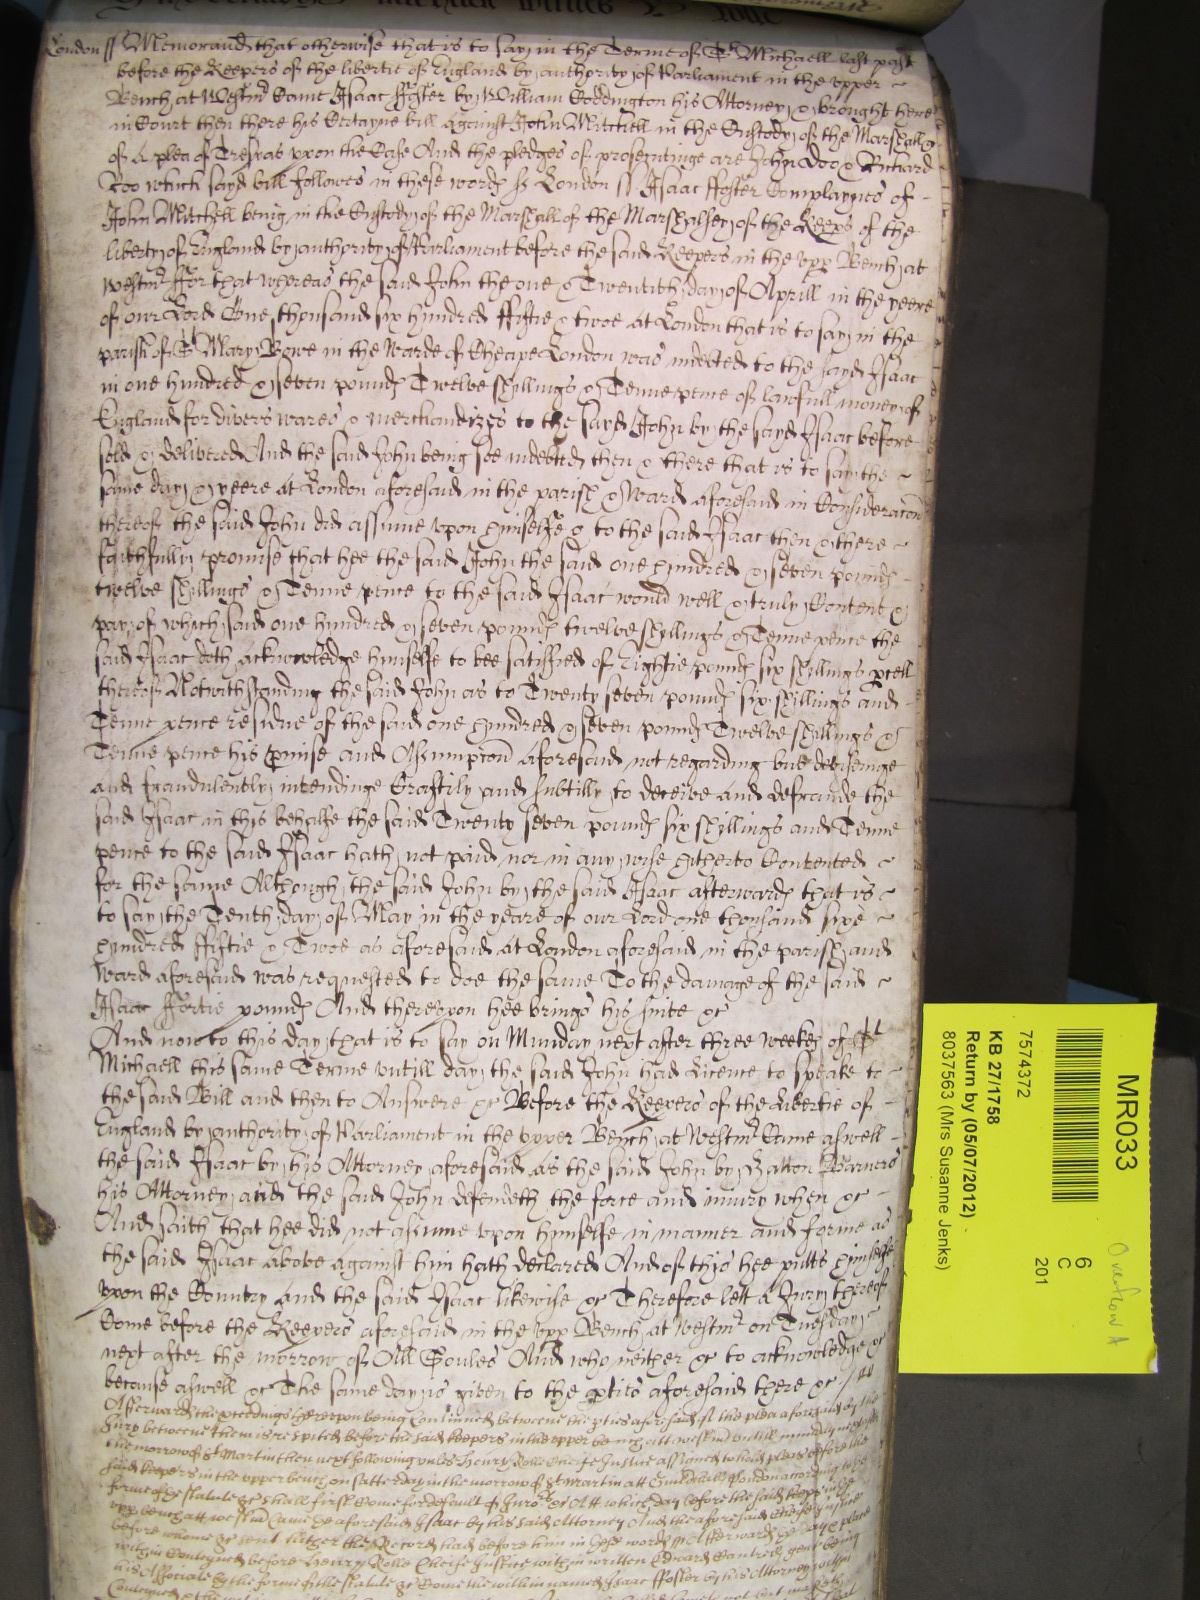 London ss Memorand that otherwise that is to say in the Terme of St Michaell last past
before the Keepers of the libertie of England by authority of Parliament in the upper
Bench at Westmr Came Isaac ffoster by William Coddington his Attorney & brought here
in Court then there his Certayne bill against John Mitchell in the Custody of the Marshall &c
of A plea of Trespas upon the Case And the pledges of prosecutinge are John Doo & Richard
Roo which sayd bill followes in these words ss London ss Isaac ffoster Complaynes of
John Mitchell being in the Custody of the Marshall of the Marshalsey of the Keeps of the
liberty of England by authority of Parliament before the said Keepers in the upp Bench at
Westmr ffor that whereas the said John the one & Twentith day of Aprill in the yeere
of our Lord One thousand six hundred ffiftie & twoe at London that is to say in the
parish of St Mary Bowe in the Warde of Cheape London was indebted to the sayd Isaac
in one hundred & seven pounds Twelve shyllings & Tenne pence of lawfull money of
England for divers wares & merchandizes to the sayd John by the sayd Isaac before
sold & delivered And the said John being soe indebted then & there that is to say the
same day & yeere at London aforesaid in the parish & Ward aforesaid in Consideracon
thereof the said John did assume upon himselfe & to the said Isaac then & there
faithfully promise that hee the said John the said one hundred & seven pounds
twelve shyllings & Tenne pence to the said Isaac would well & truly Content &
pay of which said one hundred & seven pounds twelve shyllings & Tenne pence the
said Isaac doth acknowledge himselfe to bee satisfied of Eightie pounds six shyllings pcell
thereof Notwithstanding the said John as to Twenty seven pounds six shyllings and
Tenne pence residue of the said one hundred & seven pounds Twelve shyllings &
Tenne pence his pmise and Assumpcon aforesaid not regarding but deviseinge
and fraudulently intendinge Craftily and subtilly to deceive and defraude the
said Isaac in this behalfe the said Twenty seven pounds six shyllings and Tenne
pence to the said Isaac hath not paid nor in any wise hitherto Contented
for the same Although the said John by the said Isaac afterwards that is
to say the Tenth day of May in the yeare of our Lord one thousand sixe
hundred ffiftie & Twoe as aforesaid at London aforesaid in the parish and
Ward aforesaid was requested to doe the same To the damage of the said
Isaac ffortie pounds And thereupon hee brings his suite &c
And now to this day that is to say on Munday next after three weekes of St
Michaell this same Terme untill day the said John had Licence to speake to
the said Bill and then to Answere &c Before the Keepers of the Libertie of
England by authority of Parliament in the upper Bench at Westmr Came aswell
the said Isaac by his Attorney aforesaid as the said John by Hatton Warner
his Attorney and the said John defendeth the force and injury when &c
And saith that hee did not assume upon himselfe in manner and forme as
the said Isaac above against him hath declared And of this hee putts himselfe
upon the Country And the said Isaac likewise &c Therefore lett a Jury thereof
Come before the Keepers aforesaid in the upp Bench at Westmr on Tuesday
next after the morrow of All Soules And who neither &c to acknowledge &c
because aswell &c The same day is given to the pties aforesaid there &c
Afterwards the pceedings thereupon being Continued betweene the pties aforesaid of the plea aforesaid by the
Jury betweene them is respited before the said keepers in the upper bench att westmr untill munday next after
the morrow of St Martin then next following unles Henry Rolle Cheife Justice assigned to hold pleas before the
said keepers in the upper bench on satterday in the morrow of St martin att Guildhall London according to the
forme of the statute &c shall first Come for default of Jurors &c Att which day before the said keepers in the
upp bench att westmr Came the aforesaid Isaac by his said Attorney And the aforesaid Cheife Justice
before whome &c sent hither the Record had before him in these words ss Afterwards the day & place
within Conteyned before Henry Rolle Cheife Justice within written Edward Cantrell gent being
his Associate by the forme of the statute &c Come the within named Isaac ffoster by his Attorney within
MR033
7574372
KB 27/1758
Return by (05/07/2012)
8037563 (Mrs Susanne Jenks)
6
C
201
Overflow A